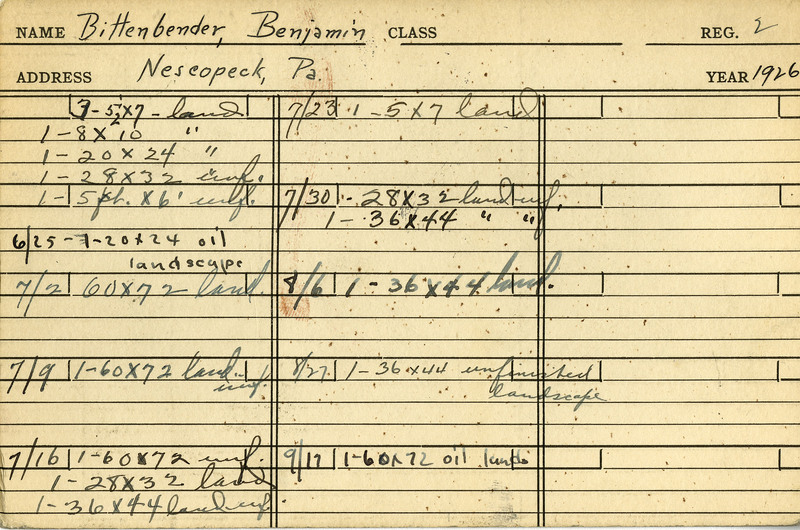 NAME Bittenbender, Benjamin CLASS REG. 2
ADDRESS Nescopeck, Pa. YEAR 1926
5x7 - land
1 - 8 x 10 "
1 - 20 x 24 "
1 - 28 x 32 unf.
1 - 5 ft. x 6' unf.
6/25 - 1-20x24 oil
landscape
7/2 60x72 land.
7/9 1-60x72 land.
unf.
7/16 1-60x72 unf.
1-28x32 land
1-36x44 land unf.
7/23 1-5x7 land
7/30 1-28x32 land unf.
1-36x44 " "
8/6 1-36x44 land.
8/27 1-36x44 unfinished
landscape
9/17 1-60x72 oil land